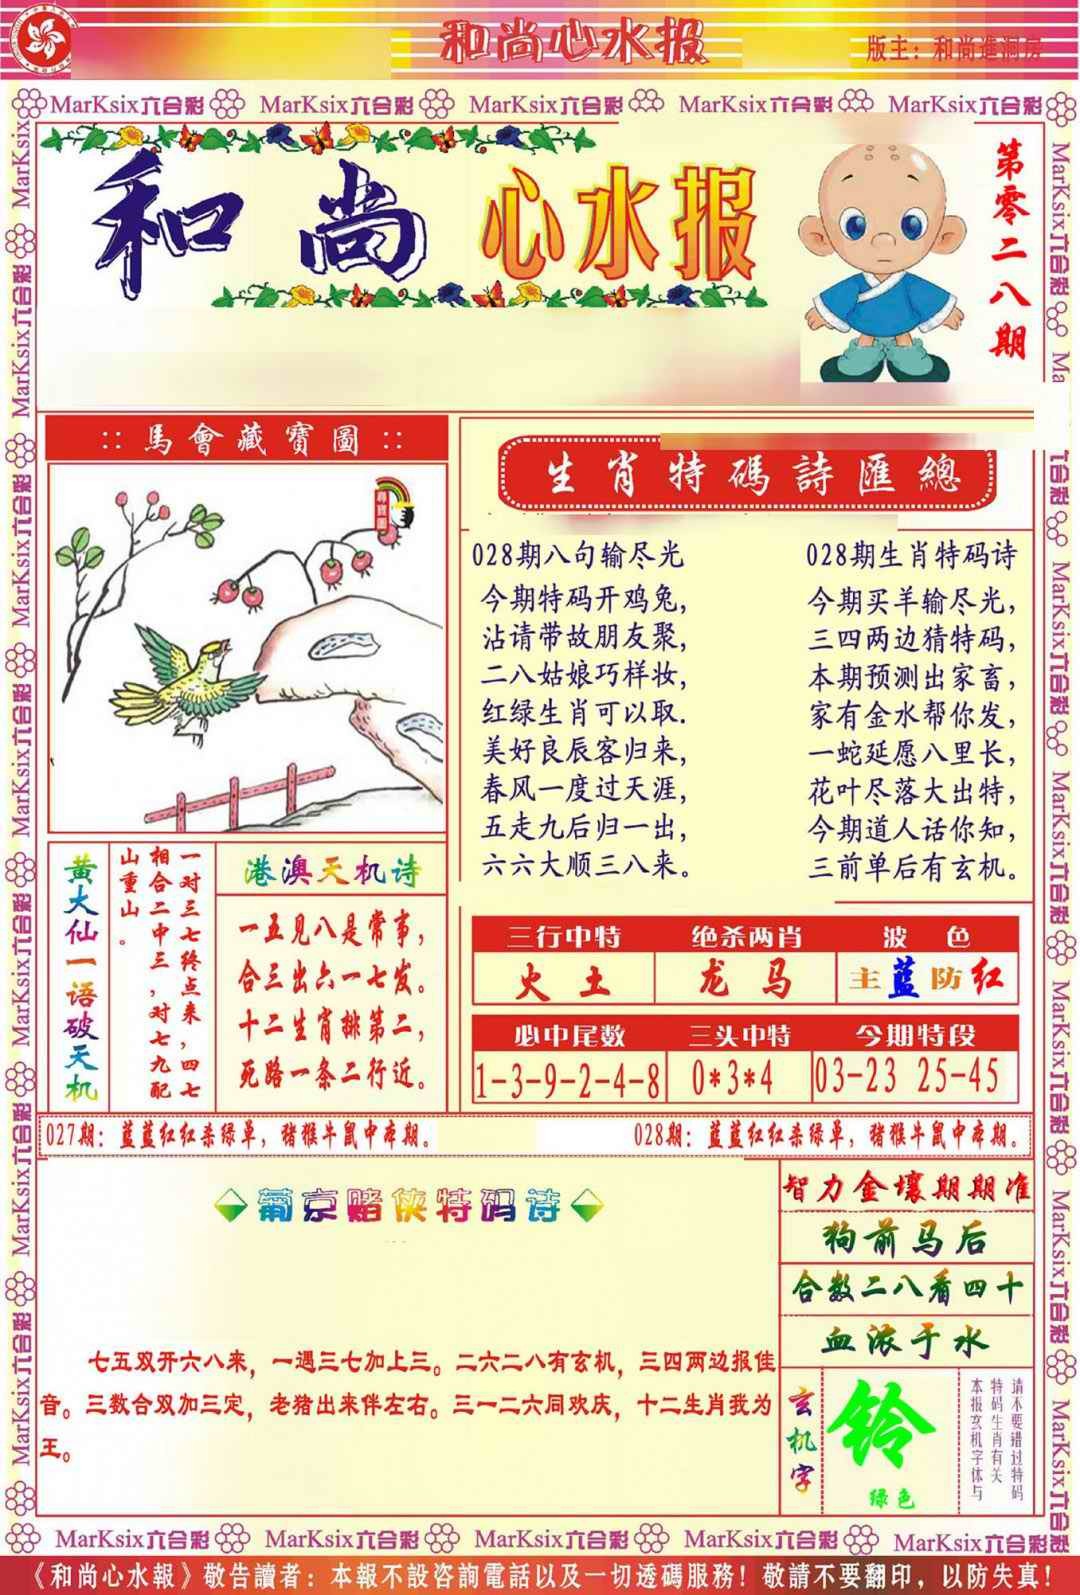 和尚心水报
版主：和尚進洞房
MarKsix六合彩 MarKsix六合彩 MarKsix六合彩 MarKsix六合彩 MarKsix六合彩
和尚心水报
第零二八期
::馬會藏寶圖::
尋寶圖
生肖特碼詩匯總
028期八句输尽光
今期特码开鸡兔，
沾请带故朋友聚，
二八姑娘巧样妆，
红绿生肖可以取.
美好良辰客归来，
春风一度过天涯，
五走九后归一出，
六六大顺三八来。
028期生肖特码诗
今期买羊输尽光，
三四两边猜特码，
本期预测出家畜，
家有金水帮你发，
一蛇延愿八里长，
花叶尽落大出特，
今期道人话你知，
三前单后有玄机。
黄大仙一语破天机
一对三七终点来，四七
相合二中三，对七九配
山重山。
港澳天机诗
一五见八是常事，
合三出六一七发。
十二生肖排第二，
死路一条二行近。
三行中特 绝杀两肖 波色
火土 龙马 主蓝防红
必中尾数 三头中特 今期特段
1-3-9-2-4-8 0*3*4 03-23 25-45
027期：蓝蓝红红杀绿单，猪猴牛鼠中本期。
028期：蓝蓝红红杀绿单，猪猴牛鼠中本期。
葡京赌侠特码诗
七五双开六八来，一遇三七加上三。二六二八有玄机，三四两边报佳
音。三数合双加三定，老猪出来伴左右。三一二六同欢庆，十二生肖我为
王。
智力金壤期期准
狗前马后
合数二八看四十
血浓于水
玄机字
铃
绿色
请不要错过特码
特码生肖有关
本报玄机字体与
MarKsix六合彩 MarKsix六合彩 MarKsix六合彩 MarKsix六合彩 MarKsix六合彩
《和尚心水報》敬告讀者：本報不設咨詢電話以及一切透碼服務！敬請不要翻印，以防失真！